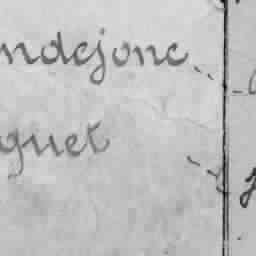 ndejonc
guet